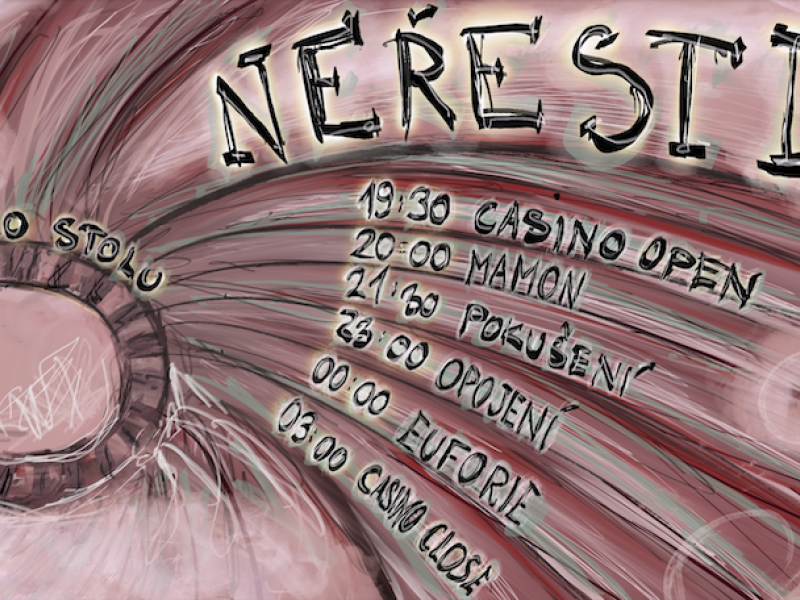 NEŘESTI
O STOLU
19:30 CASINO OPEN
20:00 MAMON
21:30 POKUŠENÍ
23:00 OPOJENÍ
00:00 EUFORIE
03:00 CASINO CLOSE